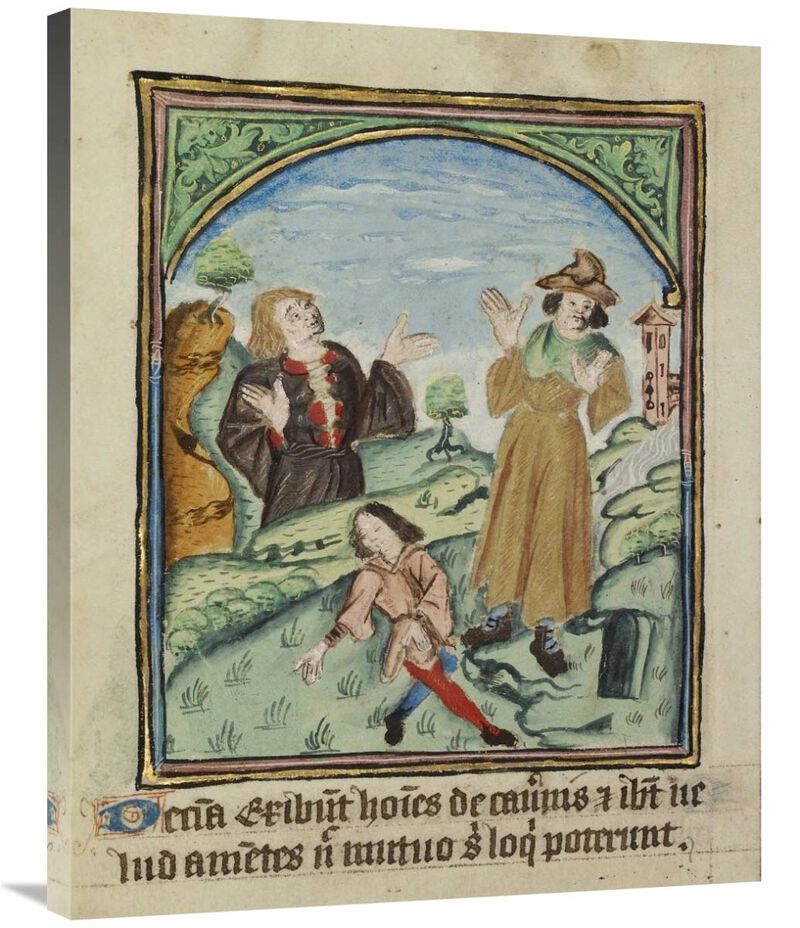 Deciā Exibūt hoīes de cau̓nis ⁊ ibn̄t ue
lud amētes n̄ mutuo s̄ loq̇ poterunt.